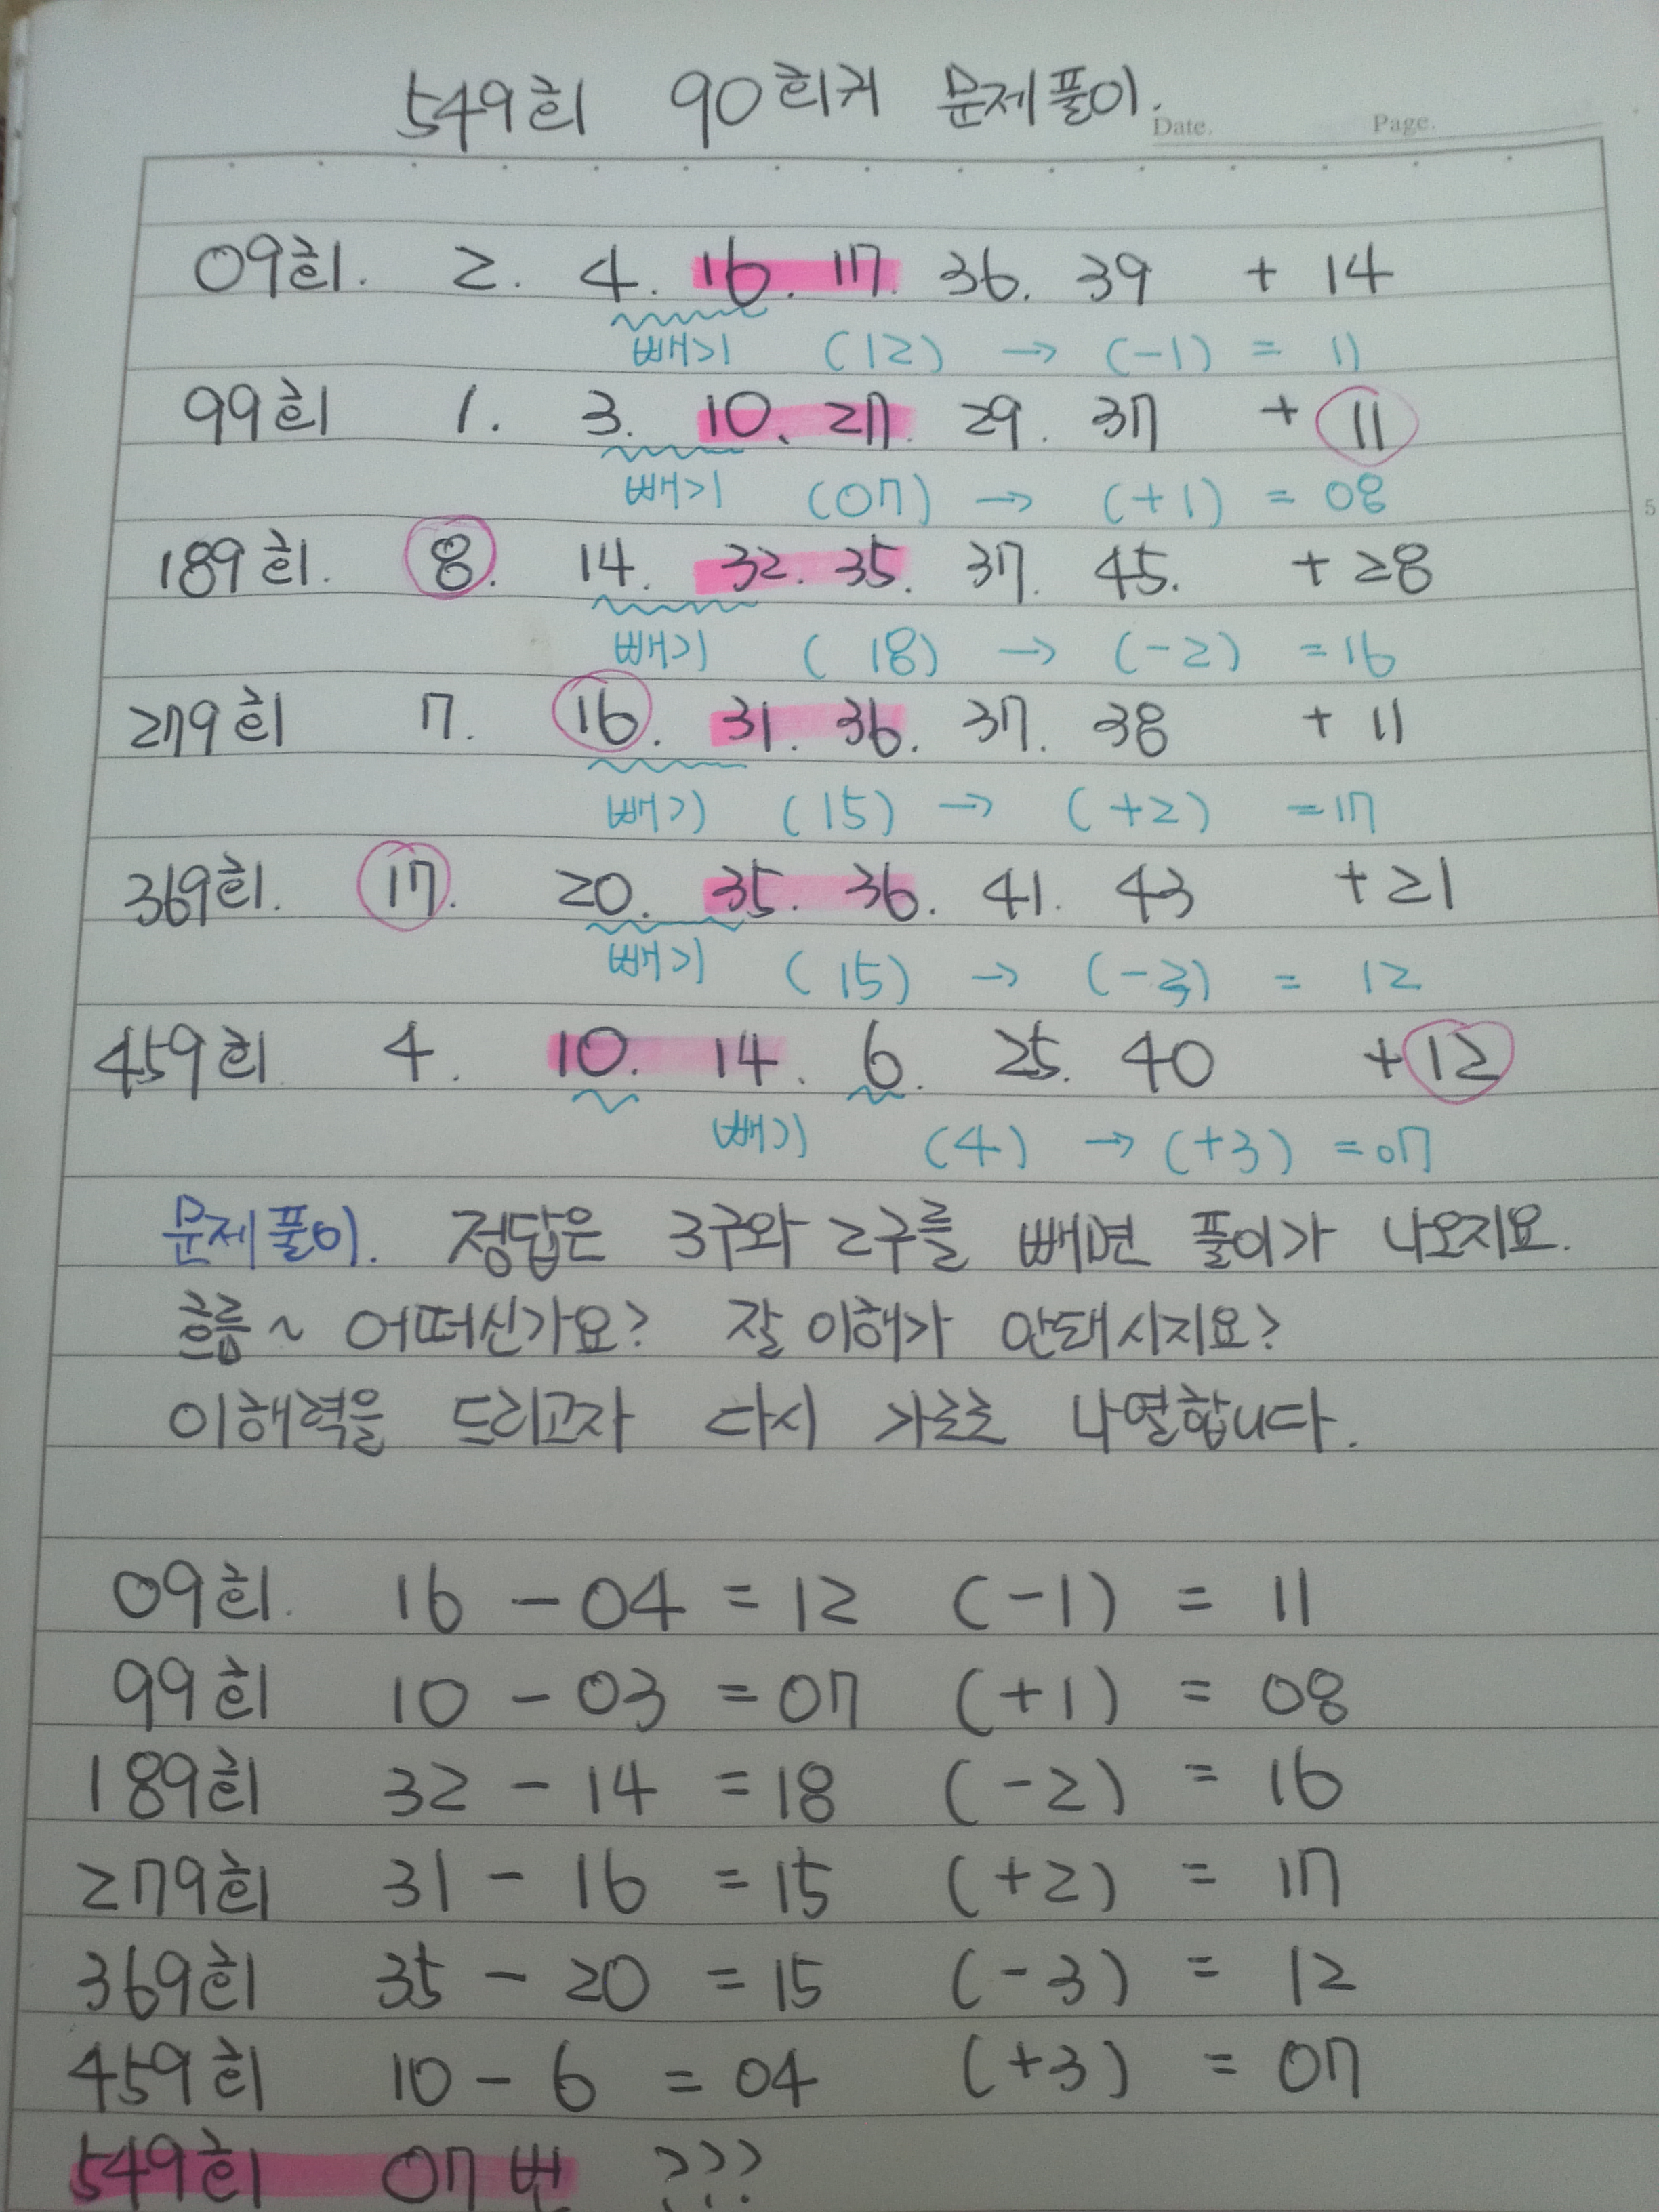 549회 90회귀 문제풀이.
Date. Page.
09회. 2. 4. 16. 17. 36. 39 + 14
빼기 (12) → (-1) = 11
99회 1. 3. 10. 27. 29. 37 + 11
빼기 (07) → (+1) = 08
5
189회. 8. 14. 32. 35. 37. 45. + 28
빼기 (18) → (-2) = 16
279회 7. 16. 31. 36. 37. 38 + 11
빼기 (15) → (+2) = 17
369회. 17. 20. 35. 36. 41. 43 + 21
빼기 (15) → (-3) = 12
459회 4. 10. 14. 6. 25. 40 + 12
빼기 (4) → (+3) = 07
문제풀이. 정답은 3구와 2구를 빼면 풀이가 나오지요.
흐름~ 어떠신가요? 잘 이해가 안돼시지요?
이해력을 드리고자 다시 가로로 나열합니다.
09회. 16 - 04 = 12 (-1) = 11
99회 10 - 03 = 07 (+1) = 08
189회 32 - 14 = 18 (-2) = 16
279회 31 - 16 = 15 (+2) = 17
369회 35 - 20 = 15 (-3) = 12
459회 10 - 6 = 04 (+3) = 07
549회 07번 ???